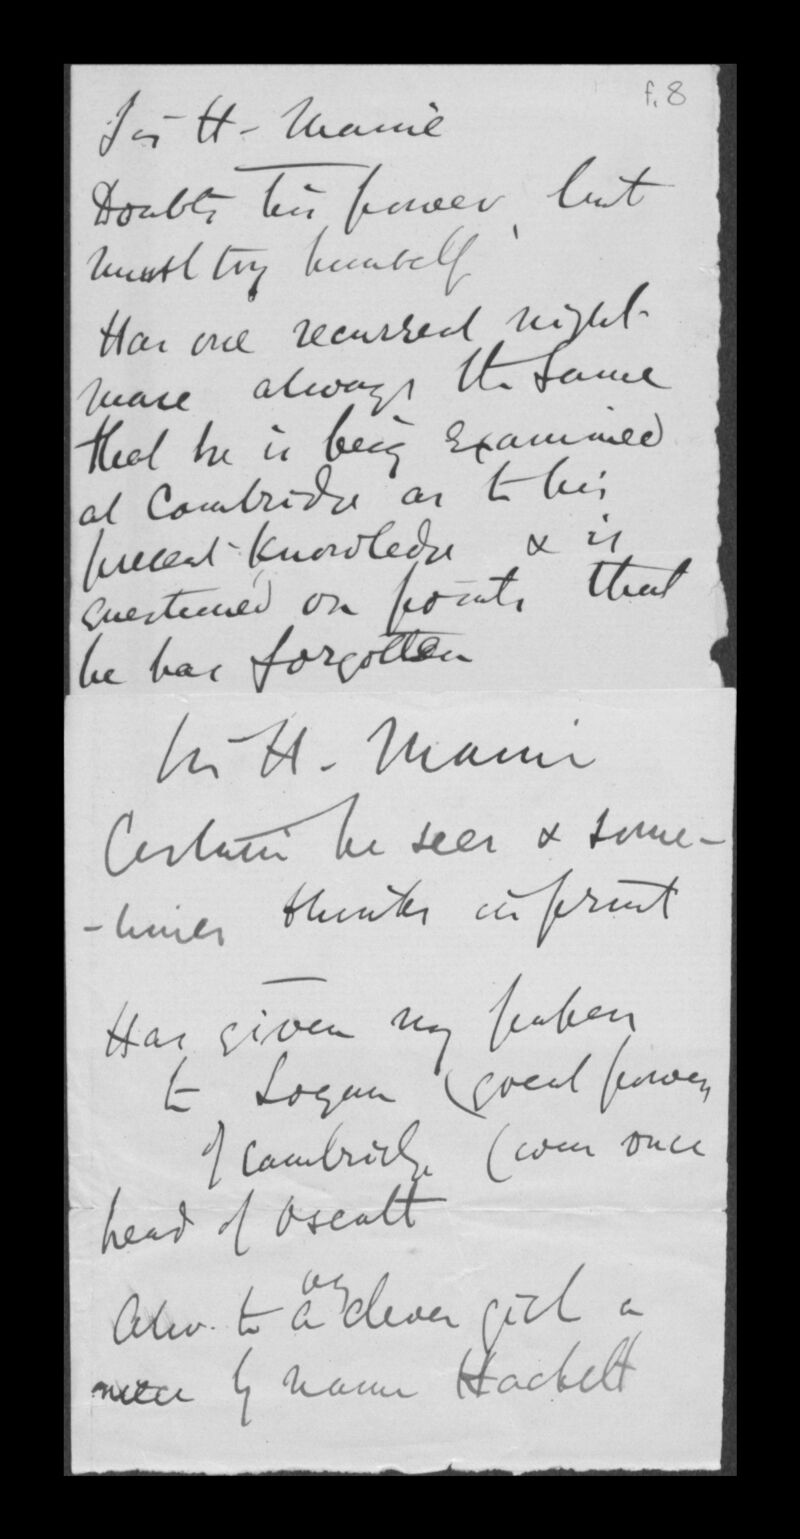 f. 8
Sir H- Maine
Doubts his power, but
must try himself
Has one recurred night-
mare always the same
that he is being examined
at Cambridge as to his
present knowledge & is
questioned on points that
he has forgotten
Sir H- Maine
Certain he sees & some-
-times thinks in print
Has given my papers
to Logan (great power
of Cambridge (was once
head of Oscott
Also to a v clever girl a
niece by name Hackett